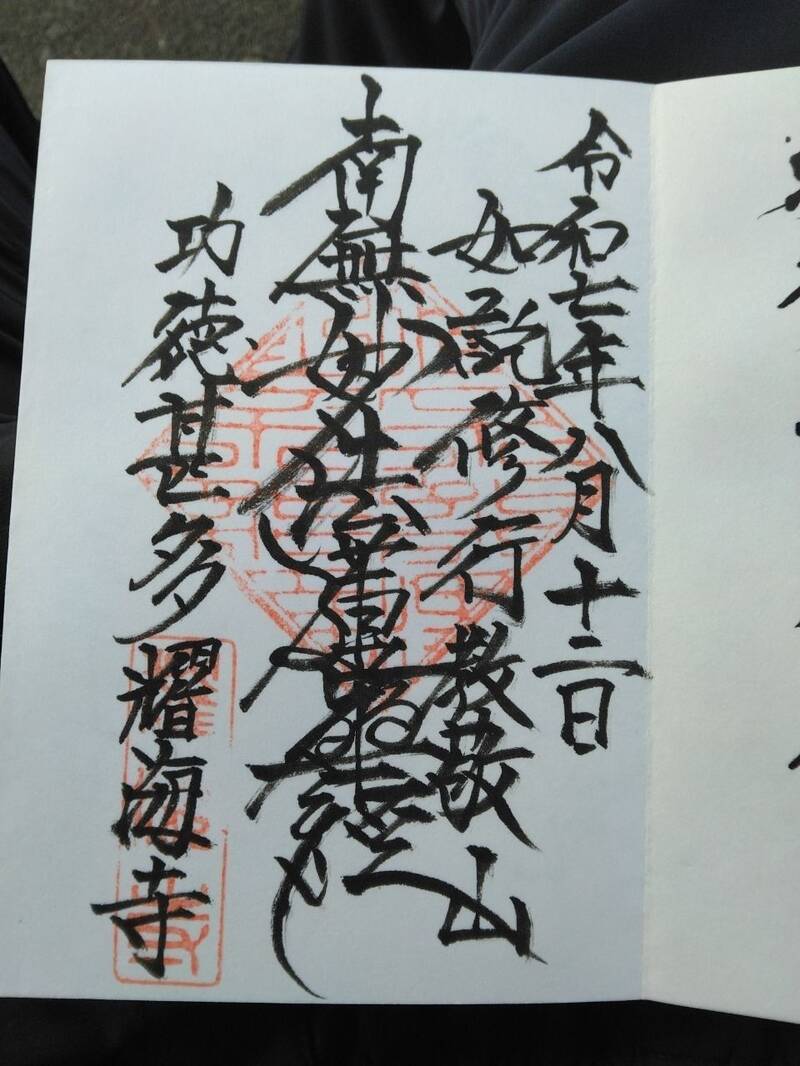 令和七年八月十二日
如説修行
南無妙法蓮華経
功徳甚多 耀海寺